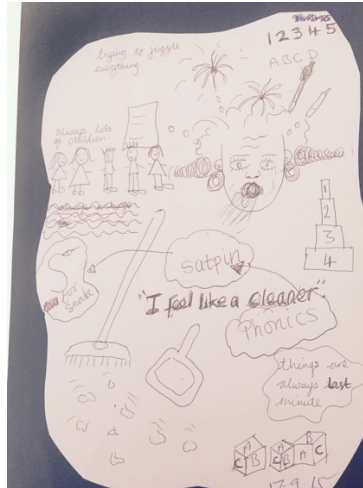 1 2 3 4 5
A B C D
trying to juggle
everything
always lots
of children.
1
2
3
4
satpin
S for
Snake
"I feel like a cleaner".
Phonics
things are
always last
minute
A
C B
A
C B
B
A
17.9.15